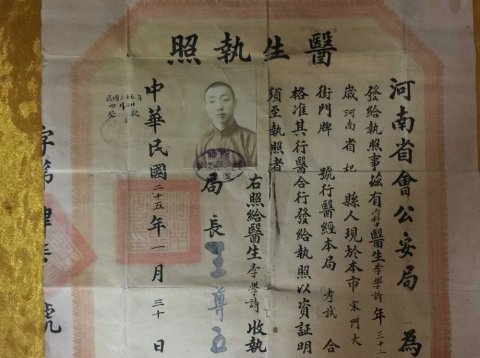 醫生執照
河南省會公安局 為
發給執照事兹有內科醫生李學詩 年
歲河南省 杞 縣人現於本市宋門大
街門牌 號行醫經本局 考試 合
格准其行醫合行發給執照以資証明
須至執照者
右照給醫生李學詩收執
局長王尊五
中華民國二十五年一月三十日
字第肆 號